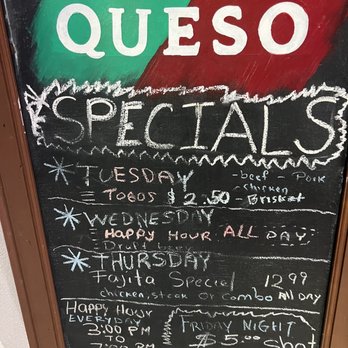 QUESO
SPECIALS
* TUESDAY - beef - Pork
TOGOS $2.50 - chicken
- Brisket
* WEDNESDAY
HAPPY HOUR ALL DAY
* THURSDAY
Fajita Special 12.99
chicken, steak or combo All DAY
Happy Hour
EVERYDAY
3:00 PM
TO
7:00
FRIDAY NIGHT
$5.00 Shot